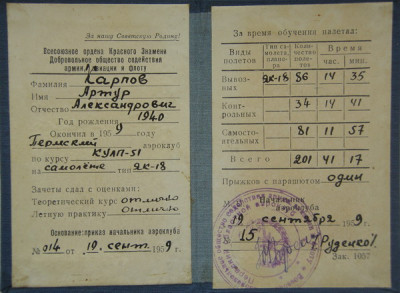 За нашу Советскую Родину!
Всесоюзное ордена Красного Знамени
Добровольное общество содействия
армии, авиации и флоту
Фамилия Карпов
Имя Артур
Отчество Александрович
Год рождения 1940
Окончил в 1959 году
Пермский аэроклуб
по курсу КУЛП-51
на самолёте тип ЯК-18
Зачеты сдал с оценками:
Теоретический курс отлично
Летную практику отлично
Основание: приказ начальника аэроклуба
№ 014 от 19 сент. 1959г.
За время обучения налетал:
Виды полетов Тип самолета, планера Количество полетов Время час. мин.
Вывозных ЯК-18 86 14 35
Контрольных 34 14 41
Самостоятельных 81 11 57
Всего 201 41 17
Прыжков с парашютом один
Начальник аэроклуба
19 сентября 1959 г.
15
/Руденко/
Зак. 1037